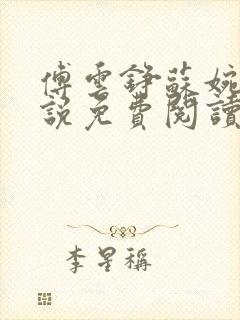 傅雲錚蘇婉
說免費閱讀
李星稱